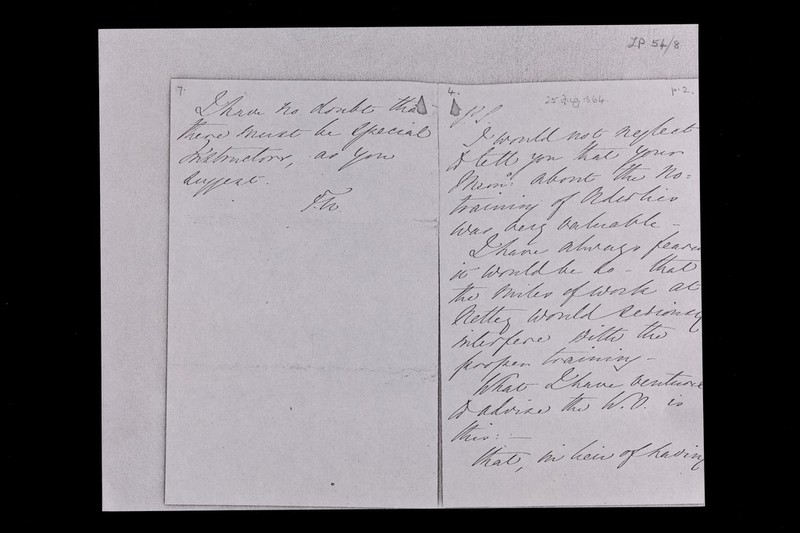 LP 54/8
7.
I have no doubt that
there must be special
Instructors, as you
suggest.
F.N.
4.
25 Aug 1864
p. 2.
P.S.
I would not neglect
to tell you that your
Memo. about the no-
training of Orderlies
was very valuable -
I have always feared
it would be so - that
the miles of work at
Netley would seriously
interfere with the
proper training -
What I have ventured
to advise the W.O. is
this: -
that, in lieu of having